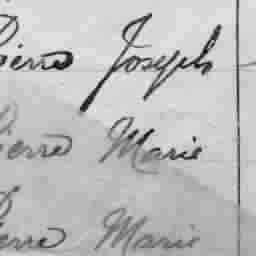 Pierre Joseph
Pierre Marie
Pierre Marie